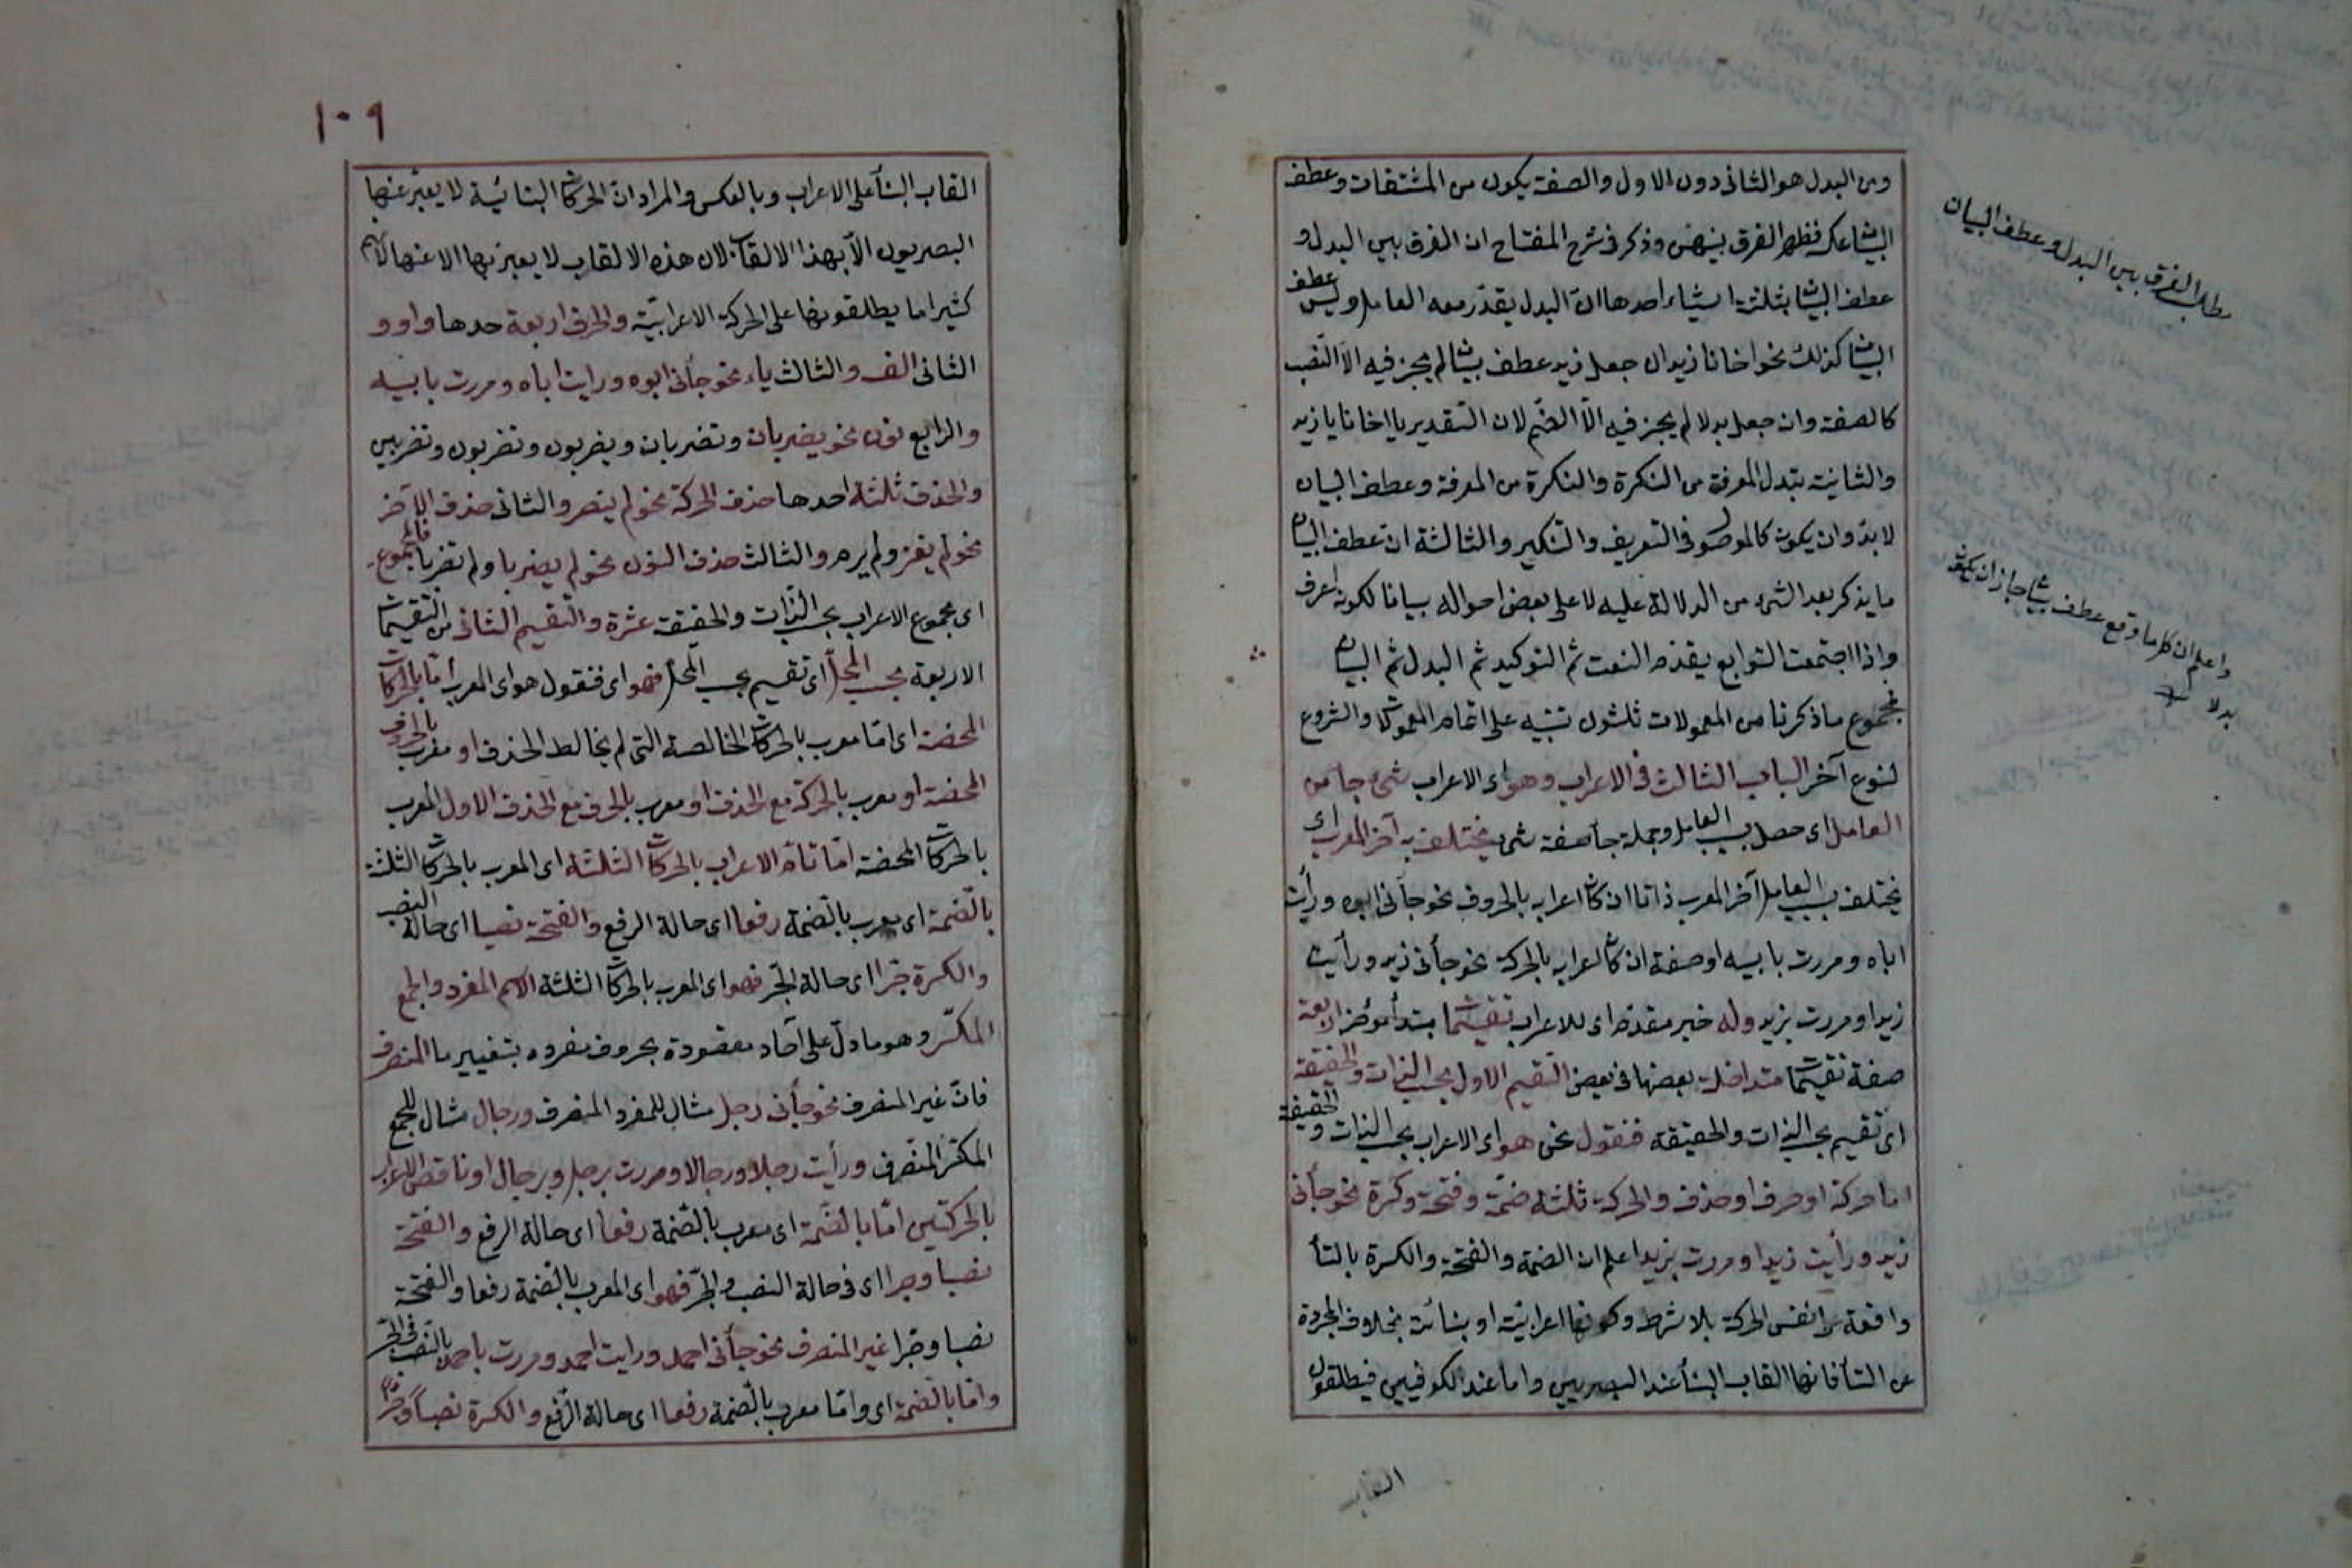 ومن البدل هو الثانى دون الاول والصفة يكون من المشتقات وعطف
البيان عكسه فظهر الفرق بينهن وذكر فى شرح المفتاح ان الفرق بين البدل و
عطف البيان بثلثة اشياء احدها ان البدل يقدر معه العامل وليس عطف
البيان كذلك نحو اخانا زيد ان جعل زيد عطف بيان لم يجز فيه الا النصب
كالصفة وان جعل بدلا لم يجز فيه الا الضم لان التقدير يا اخانا يا زيد
والثانية تبدل المعرفة من النكرة والنكرة من المعرفة وعطف البيان
لا بد وان يكون كالموصوف فى التعريف والتنكير والثالثة ان عطف البيان
ما يذكر بعد الشىء من الدلالة عليه لا على بعض احواله بيانا لكونه اعرف
واذا اجتمعت التوابع يقدم النعت ثم التوكيد ثم البدل ثم البيان
فمجموع ما ذكرنا من المعمولات ثلثون تنبيه على اتمام المعمولات والشروع
لنوع آخر الباب الثالث فى الاعراب وهو اى الاعراب شىء جاء من
العامل اى حصل بسبب العامل وجملة جاء صفة شىء يختلف به آخر المعرب اى
يختلف بسبب العامل آخر المعرب ذاتا ان كان اعرابه بالحروف نحو جاءنى ابوه ورأيت
اباه ومررت بابيه او صفة ان كان اعرابه بالحركة نحو جاءنى زيد ورأيت
زيدا ومررت بزيد وله خبر مقدم اى للاعراب تقسيمات مبتدأ مؤخر اربعة
صفة تقسيمات متداخلة بعضها فى بعض التقسيم الاول بحسب الذات والحقيقة
اى تقسيم بحسب الذات والحقيقة فنقول نحن هو اى الاعراب بحسب الذات والحقيقة
اما حركة او حرف او حذف والحركة ثلثة ضمة وفتحة وكسرة نحو جاءنى
زيد ورأيت زيدا ومررت بزيد اعلم ان الضمة والفتحة والكسرة بالتاء
واقعة على نفس الحركة بلا شرط وكونها اعرابية او بنائية بخلاف المجردة
عن التاء فانها القاب البناء عند البصريين واما عند الكوفيين فيطلقون
القاب
مطلب الفرق بين البدل وعطف البيان
واعلم ان كل ما وقع عطف بيان جاز ان يكون
بدلا
١٠٩
القاب البناء على الاعراب وبالعكس والمراد ان الحركات البنائية لا يعبر عنها
البصريون الا بهذا الالقاب لان هذه الالقاب لا يعبر بها الا عنها لانهم
كثيرا ما يطلقونها على الحركة الاعرابية والحرف اربعة احدها واو و
الثانى الف والثالث ياء نحو جاءنى ابوه ورايت اباه ومررت بابيه
والرابع نون نحو يضربان وتضربان ويضربون وتضربون وتضربين
والحذف ثلثة احدها حذف الحركة نحو لم ينصر والثانى حذف الآخر
نحو لم يغز ولم يرم والثالث حذف النون نحو لم يضربا ولم تضربا فالمجموع
اى مجموع الاعراب بحسب الذات والحقيقة عشرة والتقسيم الثانى من التقسيمات
الاربعة بحسب المحل اى تقسيم بحسب المحل فهو اى فنقول هو اى المعرب اما بالحركات
المحضة اى اما معرب بالحركات الخالصة التى لم يخالط الحذف او معرب بالحروف
المحضة او معرب بالحركة مع الحذف او معرب بالحرف مع الحذف الاول المعرب
بالحركات المحضة اما تام الاعراب بالحركات الثلثة اى المعرب بالحركات الثلثة
بالضمة اى يعرب بالضمة رفعا اى حالة الرفع والفتحة نصبا اى حالة النصب
والكسرة جرا اى حالة الجر فهو اى المعرب بالحركات الثلثة الاسم المفرد والجمع
المكسر وهو ما دل على آحاد مقصودة بحروف مفرده بتغيير ما المنصرف
فان غير المنصرف نحو جاءنى رجل مثال للمفرد المنصرف ورجال مثال للجمع
المكسر المنصرف ورأيت رجلا ورجالا ومررت برجل وبرجال او ناقص الاعراب
بالحركتين اما بالضمة اى معرب بالضمة رفعا اى حالة الرفع والفتحة
نصبا وجرا اى فى حالة النصب والجر فهو اى المعرب بالضمة رفعا والفتحة
نصبا وجرا غير المنصرف نحو جاءنى احمد ورايت احمد ومررت باحمد بالنصب فى الجر
واما بالضمة اى واما معرب بالضمة رفعا اى حالة الرفع والكسرة نصبا وجرا